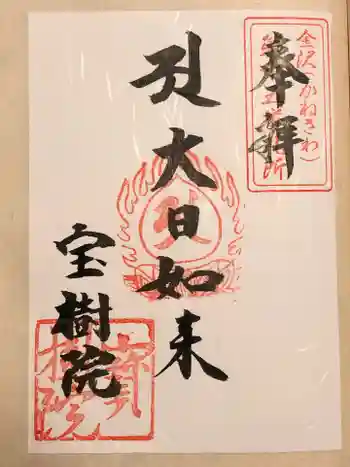 奉拝
金沢(かねさわ)
大日如来
宝樹院